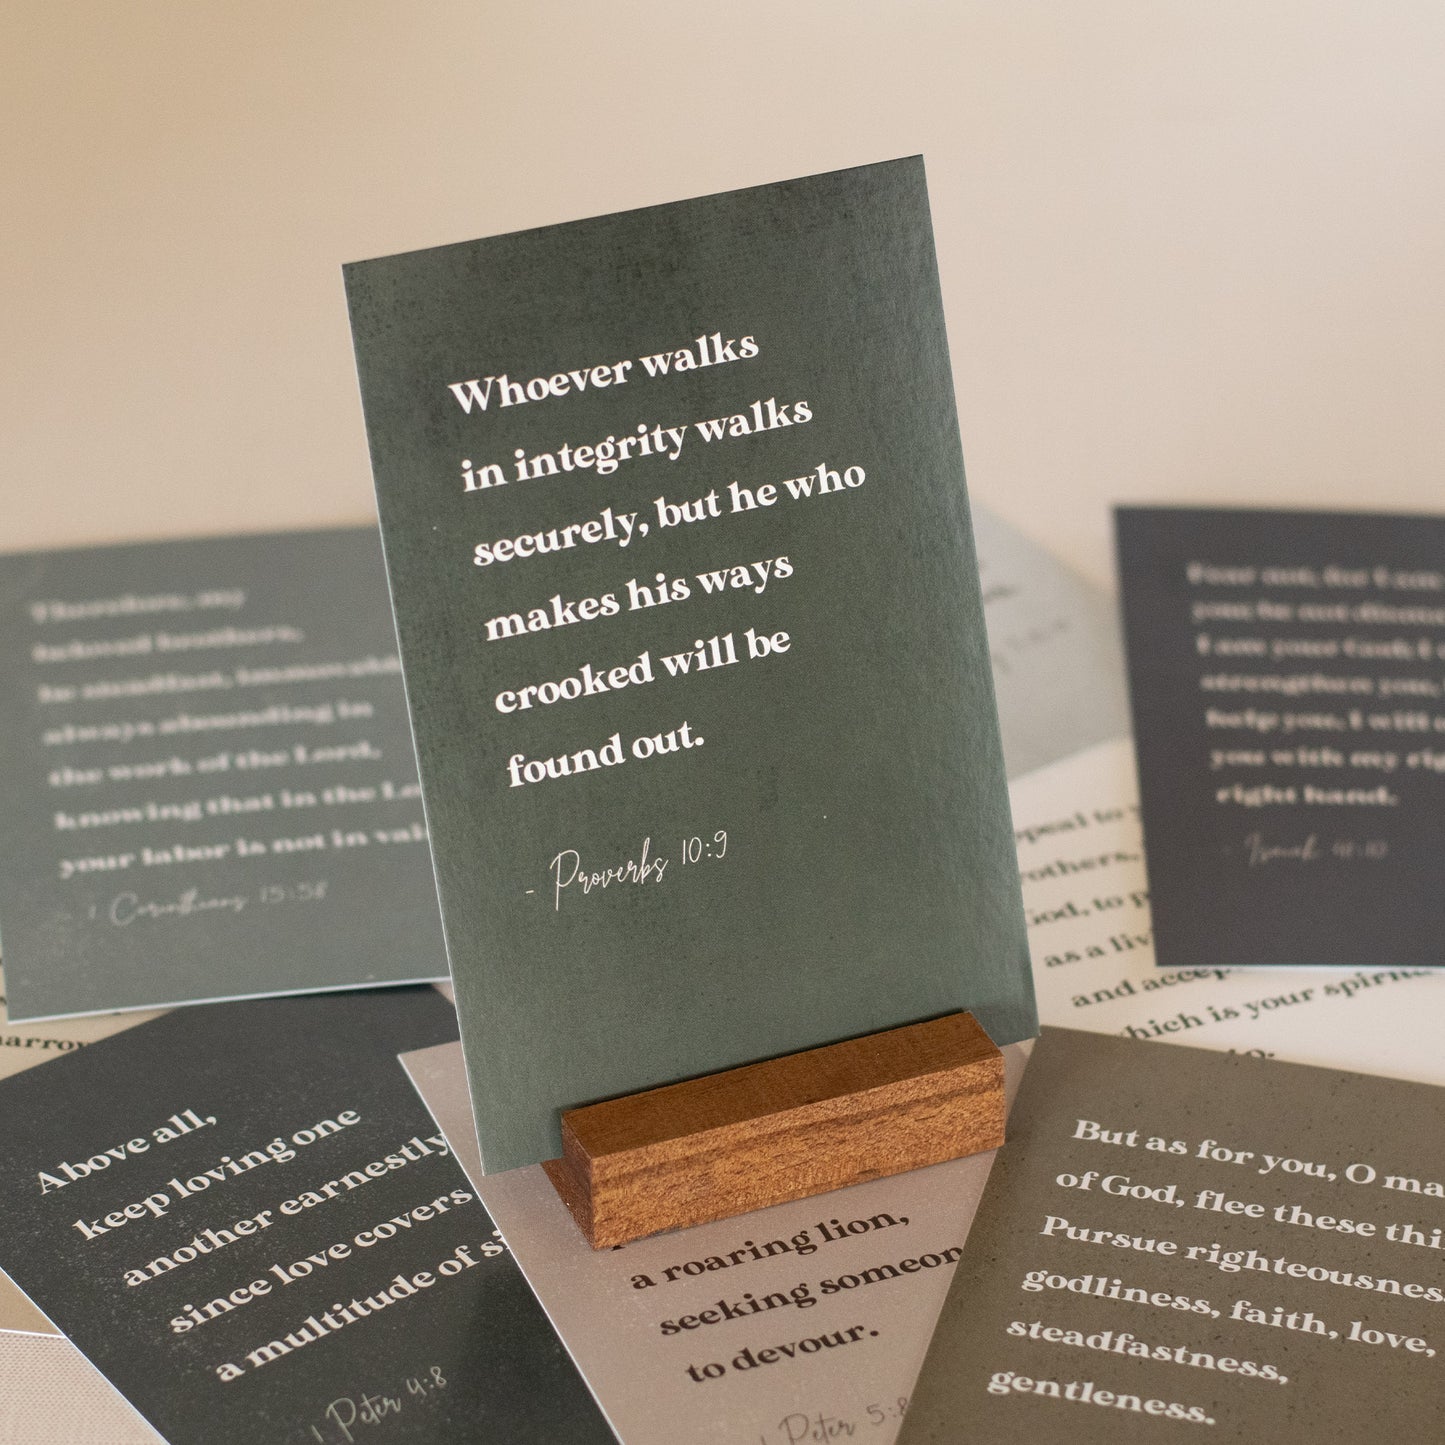 Whoever walks
in integrity walks
securely, but he who
makes his ways
crooked will be
found out.
- Proverbs 10:9
Therefore, my
beloved brothers,
be steadfast, immovable
always abounding in
the work of the Lord,
knowing that in the Lo
your labor is not in vai
- 1 Corinthians 15:58
Fear not, for I am
you; be not
I am your God, I
strengthen you,
help you, I will
you with my rig
right hand.
- Isaiah 41:10
ppeal to
rothers,
God, to p
as a liv
and accep
which is your spiritu
Above all,
keep loving one
another earnestly
since love covers
a multitude of si
1 Peter 4:8
a roaring lion,
seeking someon
to devour.
1 Peter 5:8
But as for you, O ma
of God, flee these thi
Pursue righteousnes
godliness, faith, love,
steadfastness,
gentleness.